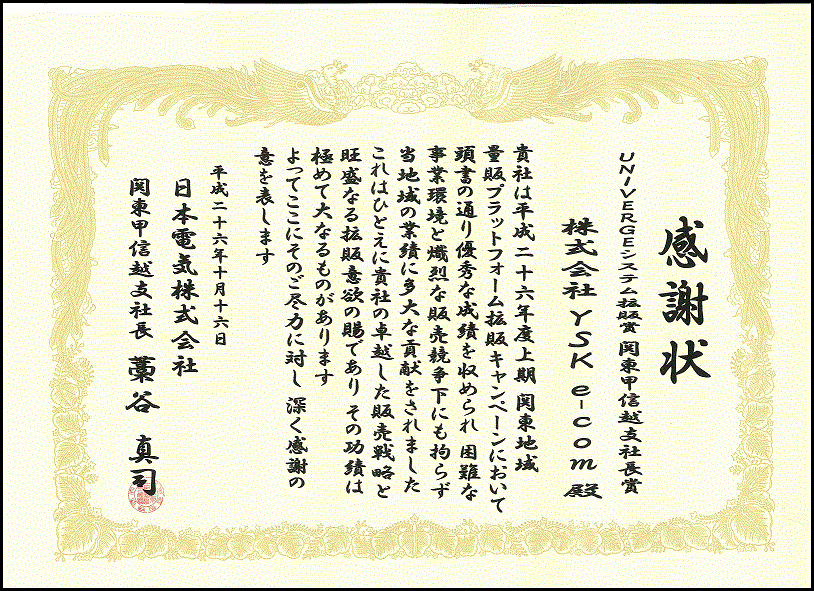 感謝状
UNIVERGEシステム拡販賞 関東甲信越支社長賞
株式会社 YSK e-com 殿
貴社は平成二十六年度上期 関東地域
量販プラットフォーム拡販キャンペーンにおいて
頭書の通り優秀な成績を収められ 困難な
事業環境と熾烈な販売競争下にも拘らず
当地域の業績に多大な貢献をされました
これはひとえに貴社の卓越した販売戦略と
旺盛なる拡販意欲の賜であり その功績は
極めて大なるものがあります
よってここにそのご尽力に対し 深く感謝の
意を表します
平成二十六年十月十六日
日本電気株式会社
関東甲信越支社長 藁谷 真司